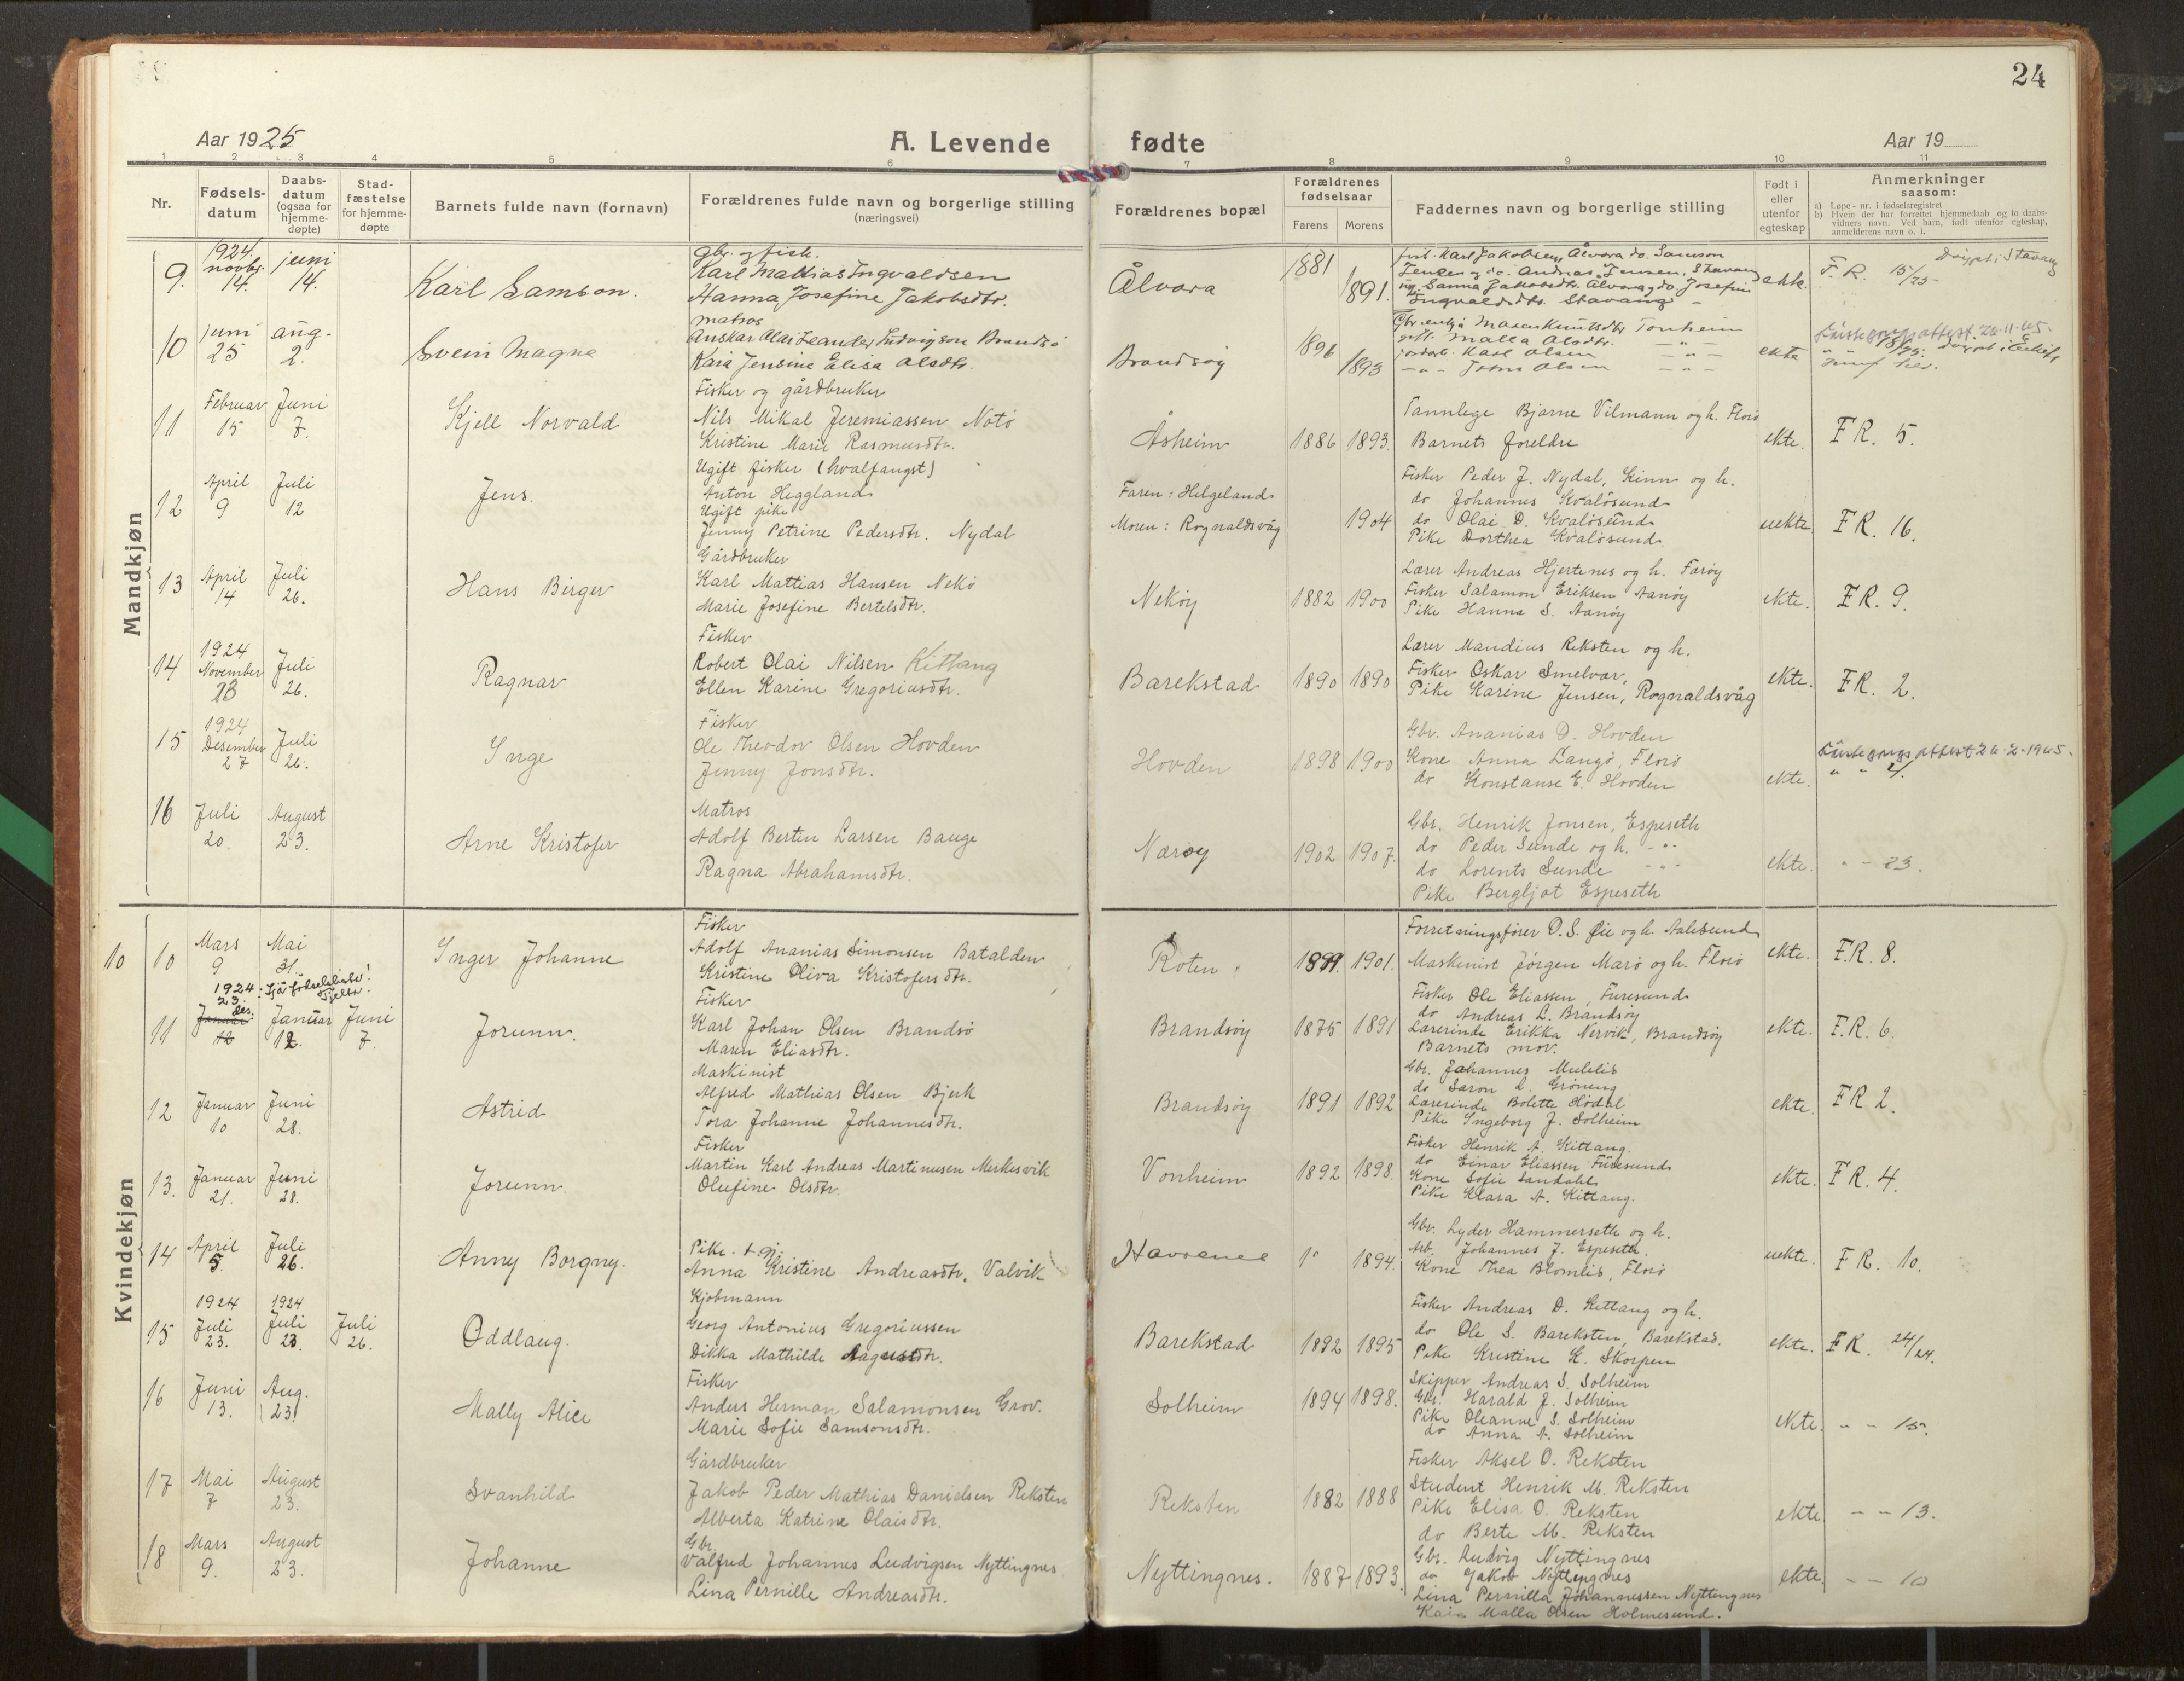 24
Aar 1925
A. Levende fødte
Aar 19
1 2 3 4 5 6 7 8 9 10 11
Nr.
Fødsels-
datum
Daabs-
datum
(ogsaa for
hjemme-
døpte)
Stad-
fæstelse
for hjemme-
døpte
Barnets fulde navn (fornavn)
Forældrenes fulde navn og borgerlige stilling
(næringsvei)
Forældrenes bopæl
Forældrenes
fødselsaar
Farens Morens
Faddernes navn og borgerlige stilling
Født i
eller
utenfor
egteskap
Anmerkninger
saasom:
a) Løpe-nr. i fødselsregistret
b) Hvem der har forrettet hjemmedaab og to daabs-
vidners navn. Ved barn, født utenfor egteskap,
anmelderens navn o. l.
Mandkjøn
9.
1924
novbr.
14.
juni
14.
Karl Samson.
gbr. og fisk.
Karl Mathias Ingvaldsen
Hanna Josefine Jakobsdtr.
Ålvora
1881
1891.
Karl Jakobsen, Ålvora do. Samson
Jensen og do. Andreas Jensen, Stavang
Sanna Jakobsdtr. Ålvora og do. Josefine
Ingvaldsdtr. Stavang
ekte.
F. R. 15/25
Døypt i Stavang
10
juni
25
aug.
2.
Svein Magne
matros
Anskar Olai Leander Ludvigson Brandsö
Kaia Jensine Elisa Olsdtr.
Brandsöy
1896
1893
Gbr. enkja Knutsdtr Tonheim
Malla Olsdtr. - " -
Karl Olsen - " -
- " - Johs Olsen - " -
ekte
11
Februar
15
Juni
7.
Kjell Norvald
Fisker og gårdbruker
Nils Mikal Jeremiassen Notö
Kristine Marie Rasmusdtr.
Åsheim
1886 1893.
Tannlege Bjarne Vilmann og h. Florö
Barnets foreldre
ekte.
F R. 5.
12
April
9
Juli
12
Jens.
Ugift fisker (hvalfangst)
Anton Heggland
Ugift pike
Jenny Petrine Pedersdtr. Nydal
Faren: Hilgeland
Moren: Rognaldsvåg
1904
Fisker Peder J. Nydal, Kinn og h.
do Johannes Kvalösund
do Olai D. Kvalösund
Pike Dorthea Kvalösund.
uekte.
F R. 16.
13
April
14
Juli
26.
Hans Birger
Gårdbruker
Karl Mattias Hansen Nekö
Marie Josefine Bertelsdtr.
Neköy
1882 1900
Lærer Andreas Hjertenes og h. Faröy
Fisker Salamon Eriksen Aanöy
Pike Hanna S. Aanöy
ekte.
F R. 9.
14
1924
November
28
Juli
26.
Ragnar
Fisker
Robert Olai Nilsen Kittang
Ellen Karine Gregoriusdtr.
Barekstad
1890 1890
Lærer Mandius Reksten og h.
Fisker Oskar Smelvær,
Pike Karine Jensen, Rognaldsvåg
ekte.
F R. 2.
15
1924
Desember
27
Juli
26.
Inge
Fisker
Ole Theodor Olsen Hovden
Jenny Jonsdtr.
Hovden
1898 1900
Gbr. Ananias D. Hovden
Kone Anna Langö, Florö
do Konstanse E. Hovden
ekte.
16
Juli
20.
August
23.
Arne Kristofer
Matros
Adolf Bertin Larsen Bauge
Ragna Abrahamsdtr.
Næröy
1902 1907.
Gbr. Henrik Jonsen, Espeseth
do Peder Sunde og h. - " -
do Lorents Sunde - " -
Pike Bergljot Espeseth
ekte.
" - 23.
Kvindekjøn
10
10
Mars
9
Mai
31.
Inger Johanne
Fisker
Adolf Ananias Simonsen Batalden
Kristine Oliva Kristofersdtr.
Roten.
1899. 1901.
Forretningsfører O. S. Öie og h. Aalesund
Maskinist Jörgen Marö og h. Florö
ekte.
F.R. 8.
11
1924
23.
des.
Januar
12
Januar
12.
Juni
7.
Jorunn.
Fisker
Karl Johan Olsen Brandsö
Maren Eliasdtr.
Brandsöy
1875 1891
Fisker Ole Eliassen, Furesund
do Andreas L. Brandsöy
Lærerinde Erikka Nervik, Brandsöy
Barnets mor.
ekte.
F.R. 6.
12
Januar
10
Juni
28.
Astrid
Maskinist
Alfred Mathias Olsen Bjerk
Tora Johanne Johannesdtr.
Brandsöy
1891 1892
Gbr. Johannes Mulelid
do Saron L. Gröneng
Lærerinde Bolette Hödal
Pike Ingeborg J. Solheim
ekte.
F R 2.
13.
Januar
21.
Juni
28.
Jorunn.
Fisker
Martin Karl Andreas Martinusen Merkesvik
Olufine Olsdtr.
Vonheim
1892 1898.
Fisker Henrik A. Kittang.
do Einar Eliassen Furesund
Kone Sofie Sandahl
Pike Klara A. Kittang.
ekte.
F R. 4.
14
April
5.
Juli
26.
Anny Borgny.
Pike
Anna Kristine Andreasdtr. Valvik
1894.
Gbr. Lyder Hammerseth og h.
Arb. Johannes J. Espeseth.
Kone Thea Blomlid, Florö
uekte.
F R. 10.
15
1924
Juli
23.
1924
Juli
23.
Juli
26.
Oddlaug.
Kjöbmann
Georg Antonius Gregoriussen
Dikka Mathilde Augustdtr.
Barekstad
1892 1895
Fisker Andreas D. Kittang og h.
do Ole S. Bareksten, Barekstad.
Pike Kristine K. Skorpen
ekte.
F R. 24/24.
16
Juni
13.
Aug.
23.
Mally Alice
Fisker
Anders Herman Salamonsen Grov.
Marie Sofie Samsonsdtr.
Solheim
1894 1898.
Skipper Andreas S. Solheim
Gbr. Harald J. Solheim
Pike Oleanne S. Solheim
do Anna A. Solheim
ekte.
- - 15.
17
Mai
7
August
23.
Svanhild
Gårdbruker
Jakob Peder Mathias Danielsen Reksten
Alberta Katrine Olaisdtr.
Reksten
1882 1888
Fisker Aksel O. Reksten
Student Henrik M. Reksten
Pike Elisa O. Reksten
do Berte M. Reksten
ekte.
- - 13.
18
Mars
9.
August
23.
Johanne
Gbr.
Valfred Johannes Ludvigsen Nyttingnes
Lina Pernille Andreasdtr.
Nyttingnes.
1887 1893.
Gbr. Ludvig Nyttingnes
do Jakob Nyttingnes
Lina Pernilla Johannessen Nyttingnes
Kaia Malla Olsen Holmesund.
ekte.
- - 10